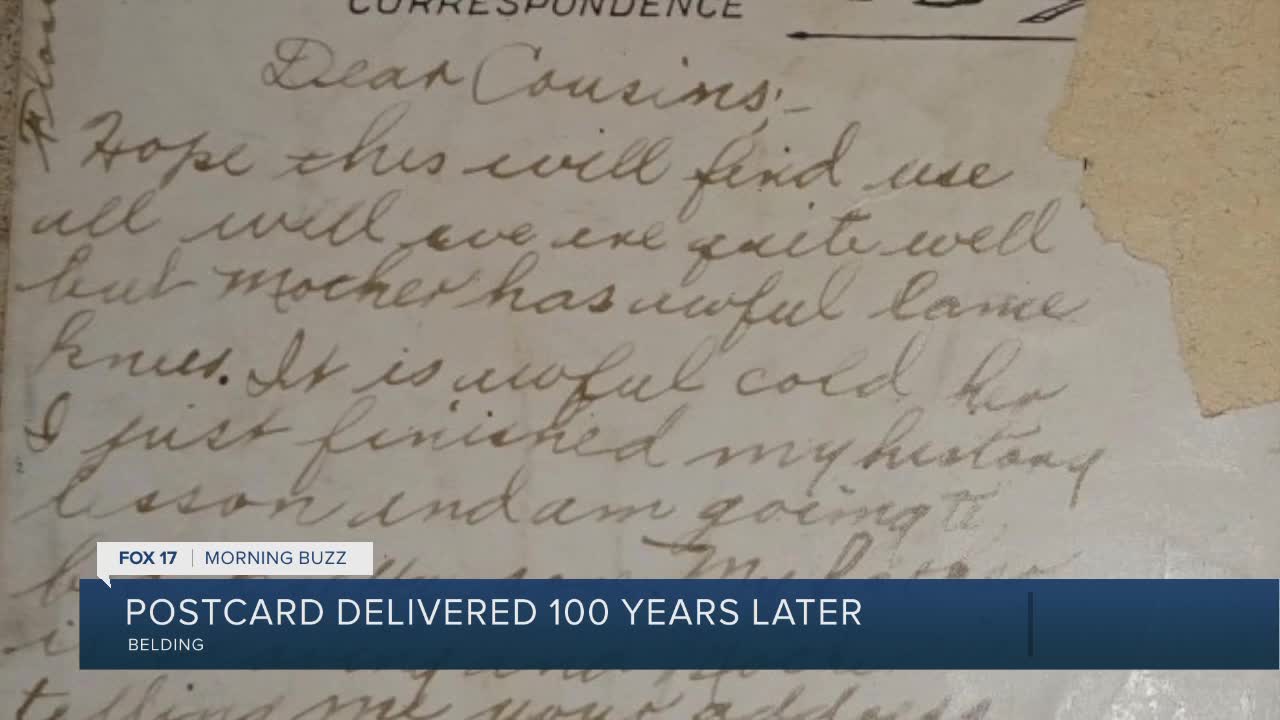 CORRESPONDENCE
Dear Cousins;-
Hope this will find use
all well we are quite well
but Mother has awful lame
knees. It is awful cold her
I just finished my history
lesson and am going to
My
telling me your address
FOX 17 | MORNING BUZZ
POSTCARD DELIVERED 100 YEARS LATER
BELDING